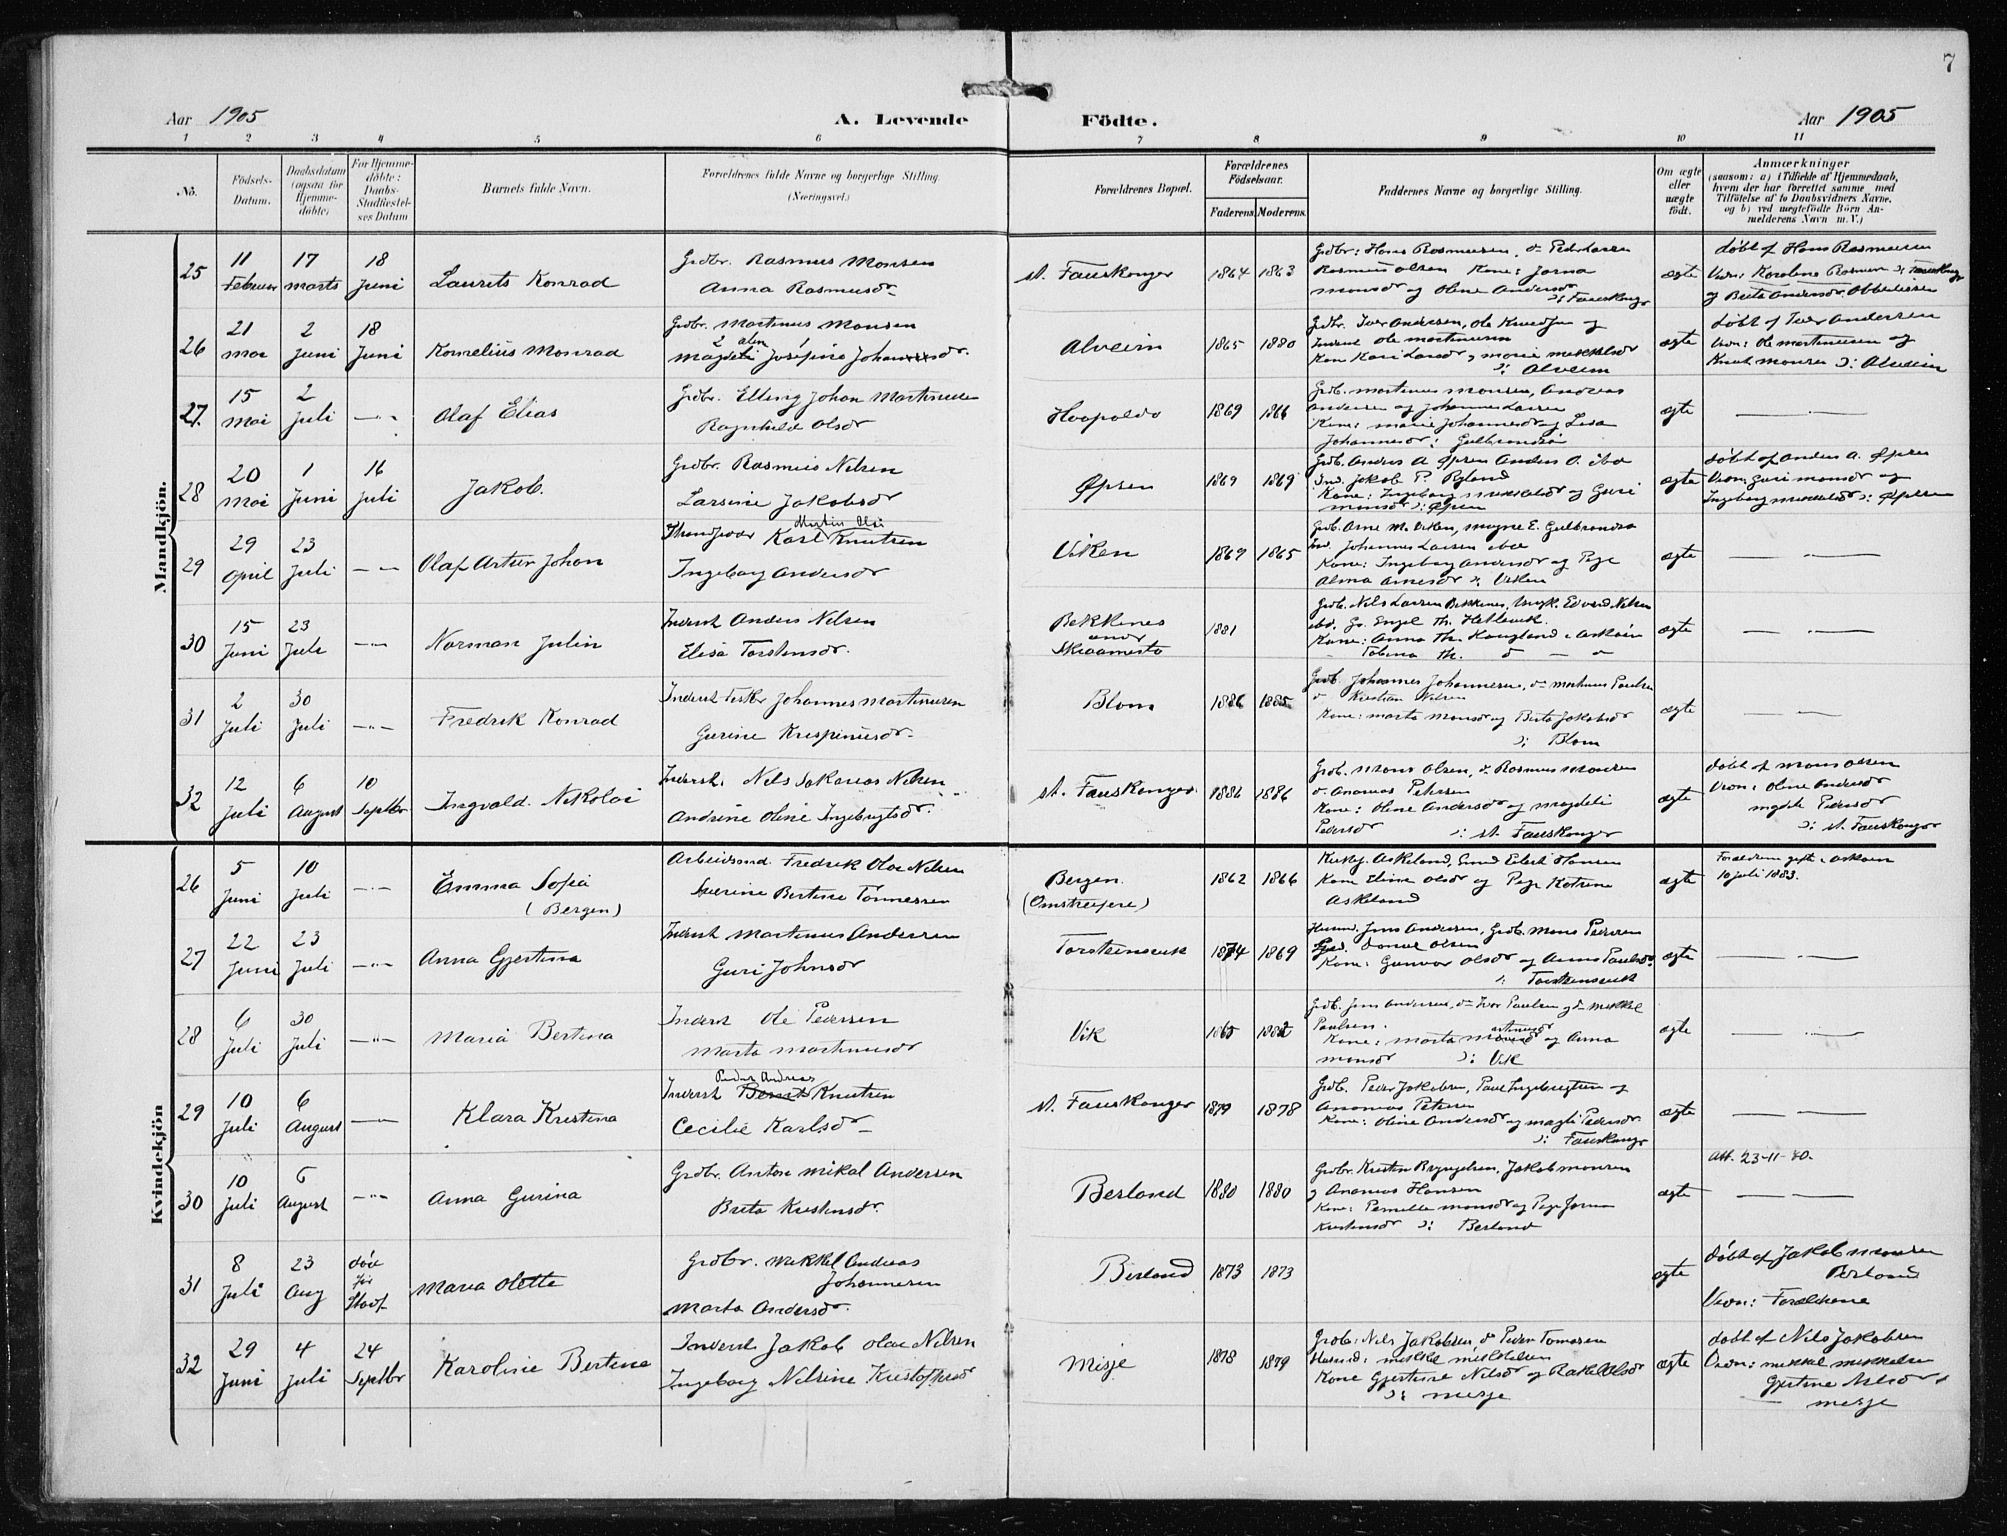 7
Aar 1905
A. Levende
Födte.
Aar 1905
1 2 3 4 5 6 7 8 9 10 11
No.
Födsels-
Datum.
Daabsdatum
(ogsaa for
Hjemme-
döbte)
For Hjemme-
döbte:
Daabs-
Stadfæstel-
ses Datum
Barnets fulde Navn.
Forældrenes fulde Navne og borgerlige Stilling.
(Næringsvei.)
Forældrenes Bopæl.
Forældrenes
Födselsaar.
Faderens Moderens
Faddernes Navne og borgerlige Stilling.
Om ægte
eller
uægte
födt.
Anmærkninger
(saasom: a) i Tilfælde af Hjemmedaab,
hvem der har forrettet samme med
Tilföielse af to Daabsvidners Navne,
og b) ved uægtefödte Börn An-
melderens Navn m. V.)
Mandkjön.
25
11 Februar
17 marts
18 Juni
Laurits Konrad
Grdbr. Rasmus Monsen
Anna Rasmusdr
st. Fauskanger
1864 1863
Grdbr: Hans Rasmusen, do Peder Larsen
Rasmus Olsen Kone: Jorna
Monsdr og Oline Andersdr
ɔ: Fauskangr
ægte
døbt af Hans Rasmusen
Vidn: Karoline Rasmusen ɔ: Fauskangr
26
21 mai
2 Juni
18 Juni
Kornelius Monrad
Grdbr. Martinus Monsen
Magdeli Josefine Johannesdr.
Alveim
1865 1880
Grdbr. Iver Andersen, Ole Knudsen og
Inderst Ole Martinusen
Kone Kari Larsdr, Marie Mikkelsdr
ɔ: Alveim
ægte
døbt af Iver Andersen
Vidn: Ole Martinusen og
Knut Monsen ɔ: Alveim
27.
15 mai
2 Juli
— " —
Olaf Elias
Grdbr. Elling Johan Martinusen
Ragnhild Olsdr
Hopoldo
1869 1866
Grdb. Martinus Monsen, Andreas
Andersen og Johannes Larsen
Kone: Marie Johannesdr og Lisa
Johannesdr: Gulbrandsøi
ægte
28
20 mai
1 Juni
16 Juli
Jakob.
Grdbr. Rasmus Nilsen
Larsine Jakobsdr
Øpsen
1869 1869
Grdb. Anders A. Øpsen Anders O. ibd
Ind. Jakob P. Ryland
Kone: Ingeborg Mikkelsdr og Guri
Monsdr ɔ: Øpsen
ægte
døbt af Anders A. Øpsen
Vidn: Guri Monsdr og
Ingeborg Mikkelsdr ɔ: Øpsen
29
29 April
23 Juli
— " —
Olaf Artur Johan
Martin Olai
Karl Knutsen
Ingeborg Andersdr
Viken
1869 1865
Grdb. Arne M. Viken, Magne E. Gulbrandsø
Ind. Johannes Larsen ibd
Kone: Ingeborg Andersdr og Pige
Alma Arnesdr ɔ: Viken
ægte
30
15 Juni
23 Juli
— " —
Norman Julin
Inderst Anders Nilsen
Elisa Torstensdr.
Bekkenes
1881
Grdb. Nils Larsen Bekkenes, Ungk. Edvard Nilsen
ibd. Gs. Engel Th. Hetlevik.
Kone: Anna Th. Haugland i Askøin
ægte
31
2 Juli
30 Juli
— " —
Fredrik Konrad
Inderst Fisker Johannes Martinusen
Gurine Krispinusdr
Blom
1886 1885
Grdb. Johannes Johannesen, do Mathias Paulsen
do Kristian Nilsen
Kone: Marta Monsdr og Berta Jakobsdr
ɔ: Blom
ægte
32
12 Juli
6 August
10 Septbr
Ingvald Nikolai
Inderst. Nils Sakarias Nilsen
Andrine Oline Ingebrigtsdr.
st. Fauskanger
1886 1886
Grdb. Mons Olsen, do Rasmus Monsen
do Ananias Petersen
Kone: Oline Andersdr og Magdeli
Pedersdr ɔ: st. Fauskanger
ægte
døbt af Mons Olsen
Vidn: Oline Andersdr
Magdeli Pedersdr
ɔ: st. Fauskanger
Kvindekjön
26
5 Juni
10 Juli
— " —
Emma Sofia
(Bergen)
Arbeidsmd Fredrik Olai Nilsen
Severine Bertine Tønnesen
Bergen.
(Omstreifere)
1862 1866
Kirkeg. Askeland, Smed Eilert Hansen
Kone Eline Olsdr og Pige Katrine
Askeland
ægte
Forældrene gifte i Askøen
10 juli 1883.
27
22 Juni
23 Juli
— " —
Anna Gjertina
Inderst Martinus Andersen
Guri Johnsdr
Torsteinsvik
1874 1869
Husmd. Jens Andersen, Grdb. Mons Pedersen
Daniel Olsen
Kone: Gunvor Olsdr og Anna Paulsdr
ɔ: Torsteinsvik
ægte
28
6 Juli
30 Juli
— " —
Maria Bertina
Inderst Ole Pedersen
Marta Martinusdr
Vik
1865 1882
Grdb. Jens Andersen, do Iver Paulsen og do Mikkel
Paulsen.
Kone: Marta og Anna
Monsdr ɔ: Vik
ægte
29
10 Juli
6 August
— " —
Klara Kristina
Peder Andreas
Inderst Bernt Knutsen
Cecilie Karlsdr
st. Fauskanger
1879 1878
Grdb. Peder Jakobsen, Paul Ingebrigtsen og
Ananias Petersen
Kone: Oline Andersdr og Magli Pedersdr
ɔ: Fauskangr
ægte
30
10 Juli
6 August
— " —
Anna Gurina
Grdbr. Anton Mikal Andersen
Brita Kristensdr.
Berland
1880 1880
Grdbr. Kristen Brynjelsen, Jakob Monsen
og Ananias Hansen
Kone: Pernille Monsdr og Pige Jorna
Kristensdr ɔ: Berland
ægte
Att. 23-11-40.
31
8 Juli
23 Aug
død før Stadf.
Maria Olette
Grdbr. Mikkel Andreas
Johannesen
Marta Andersdr.
Berland
1873 1873
ægte
døbt af Jakob Monsen
Berland
Vidn: Forældrene
32
29 Juni
4 Juli
24 Septbr
Karoline Bertine
Inderst Jakob Olai Nilsen
Ingeborg Nilsine Kristoffersdr
Misje
1878 1879
Grdb: Nils Jakobsen, do Peder Tomasen
Husmd: Mikkel Mikkelsen
Kone Gjertine Nilsdr og Rakel Olsdr
ɔ: Misje
ægte
døbt af Nils Jakobsen
Vidn: Mikkel Mikkelsen
Gjertine Nilsdr
Misje